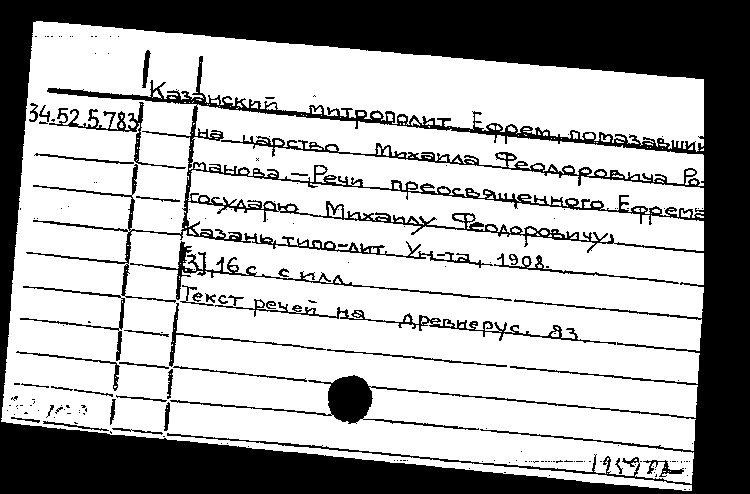 Казанский митрополит Ефрем, помазавший
34.52.5.783
на царство Михаила Феодоровича Ро-
манова.—Речи преосвященного Ефрема
государю Михаилу Феодоровичу.
Казань, типо-лит. Ун-та, 1908.
[3], 16 с. с илл.
Текст речей на древнерус. яз.
1959